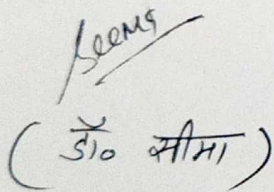 Seema
( डॉ० सीमा )